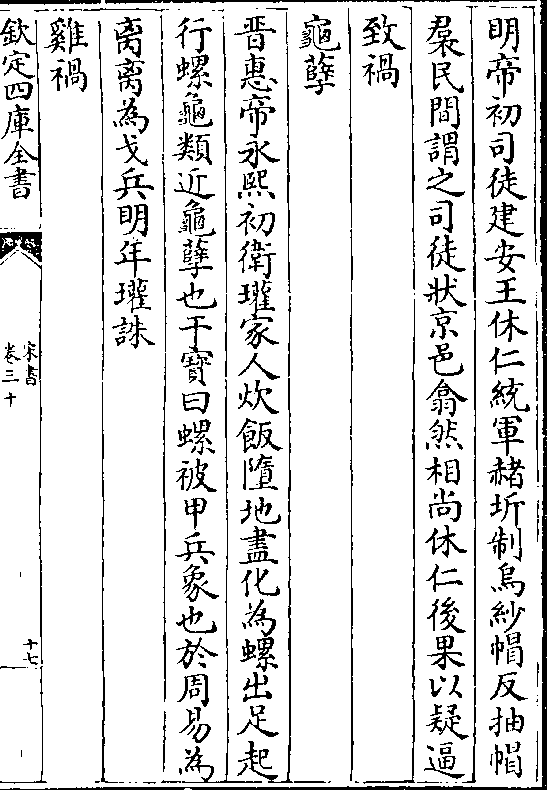 明帝初司徒建安王休仁統軍赭圻制烏紗帽反抽帽
裠民間謂之司徒狀京邑翕然相尚休仁後果以疑逼
致禍
龜孽
晉惠帝永熙初衛瓘家人炊飯墮地盡化為螺出足起
行螺龜類近龜孽也干寶曰螺被甲兵象也於周易為
离离為戈兵明年瓘誅
雞禍
欽定四庫全書
宋書
卷三十
十七